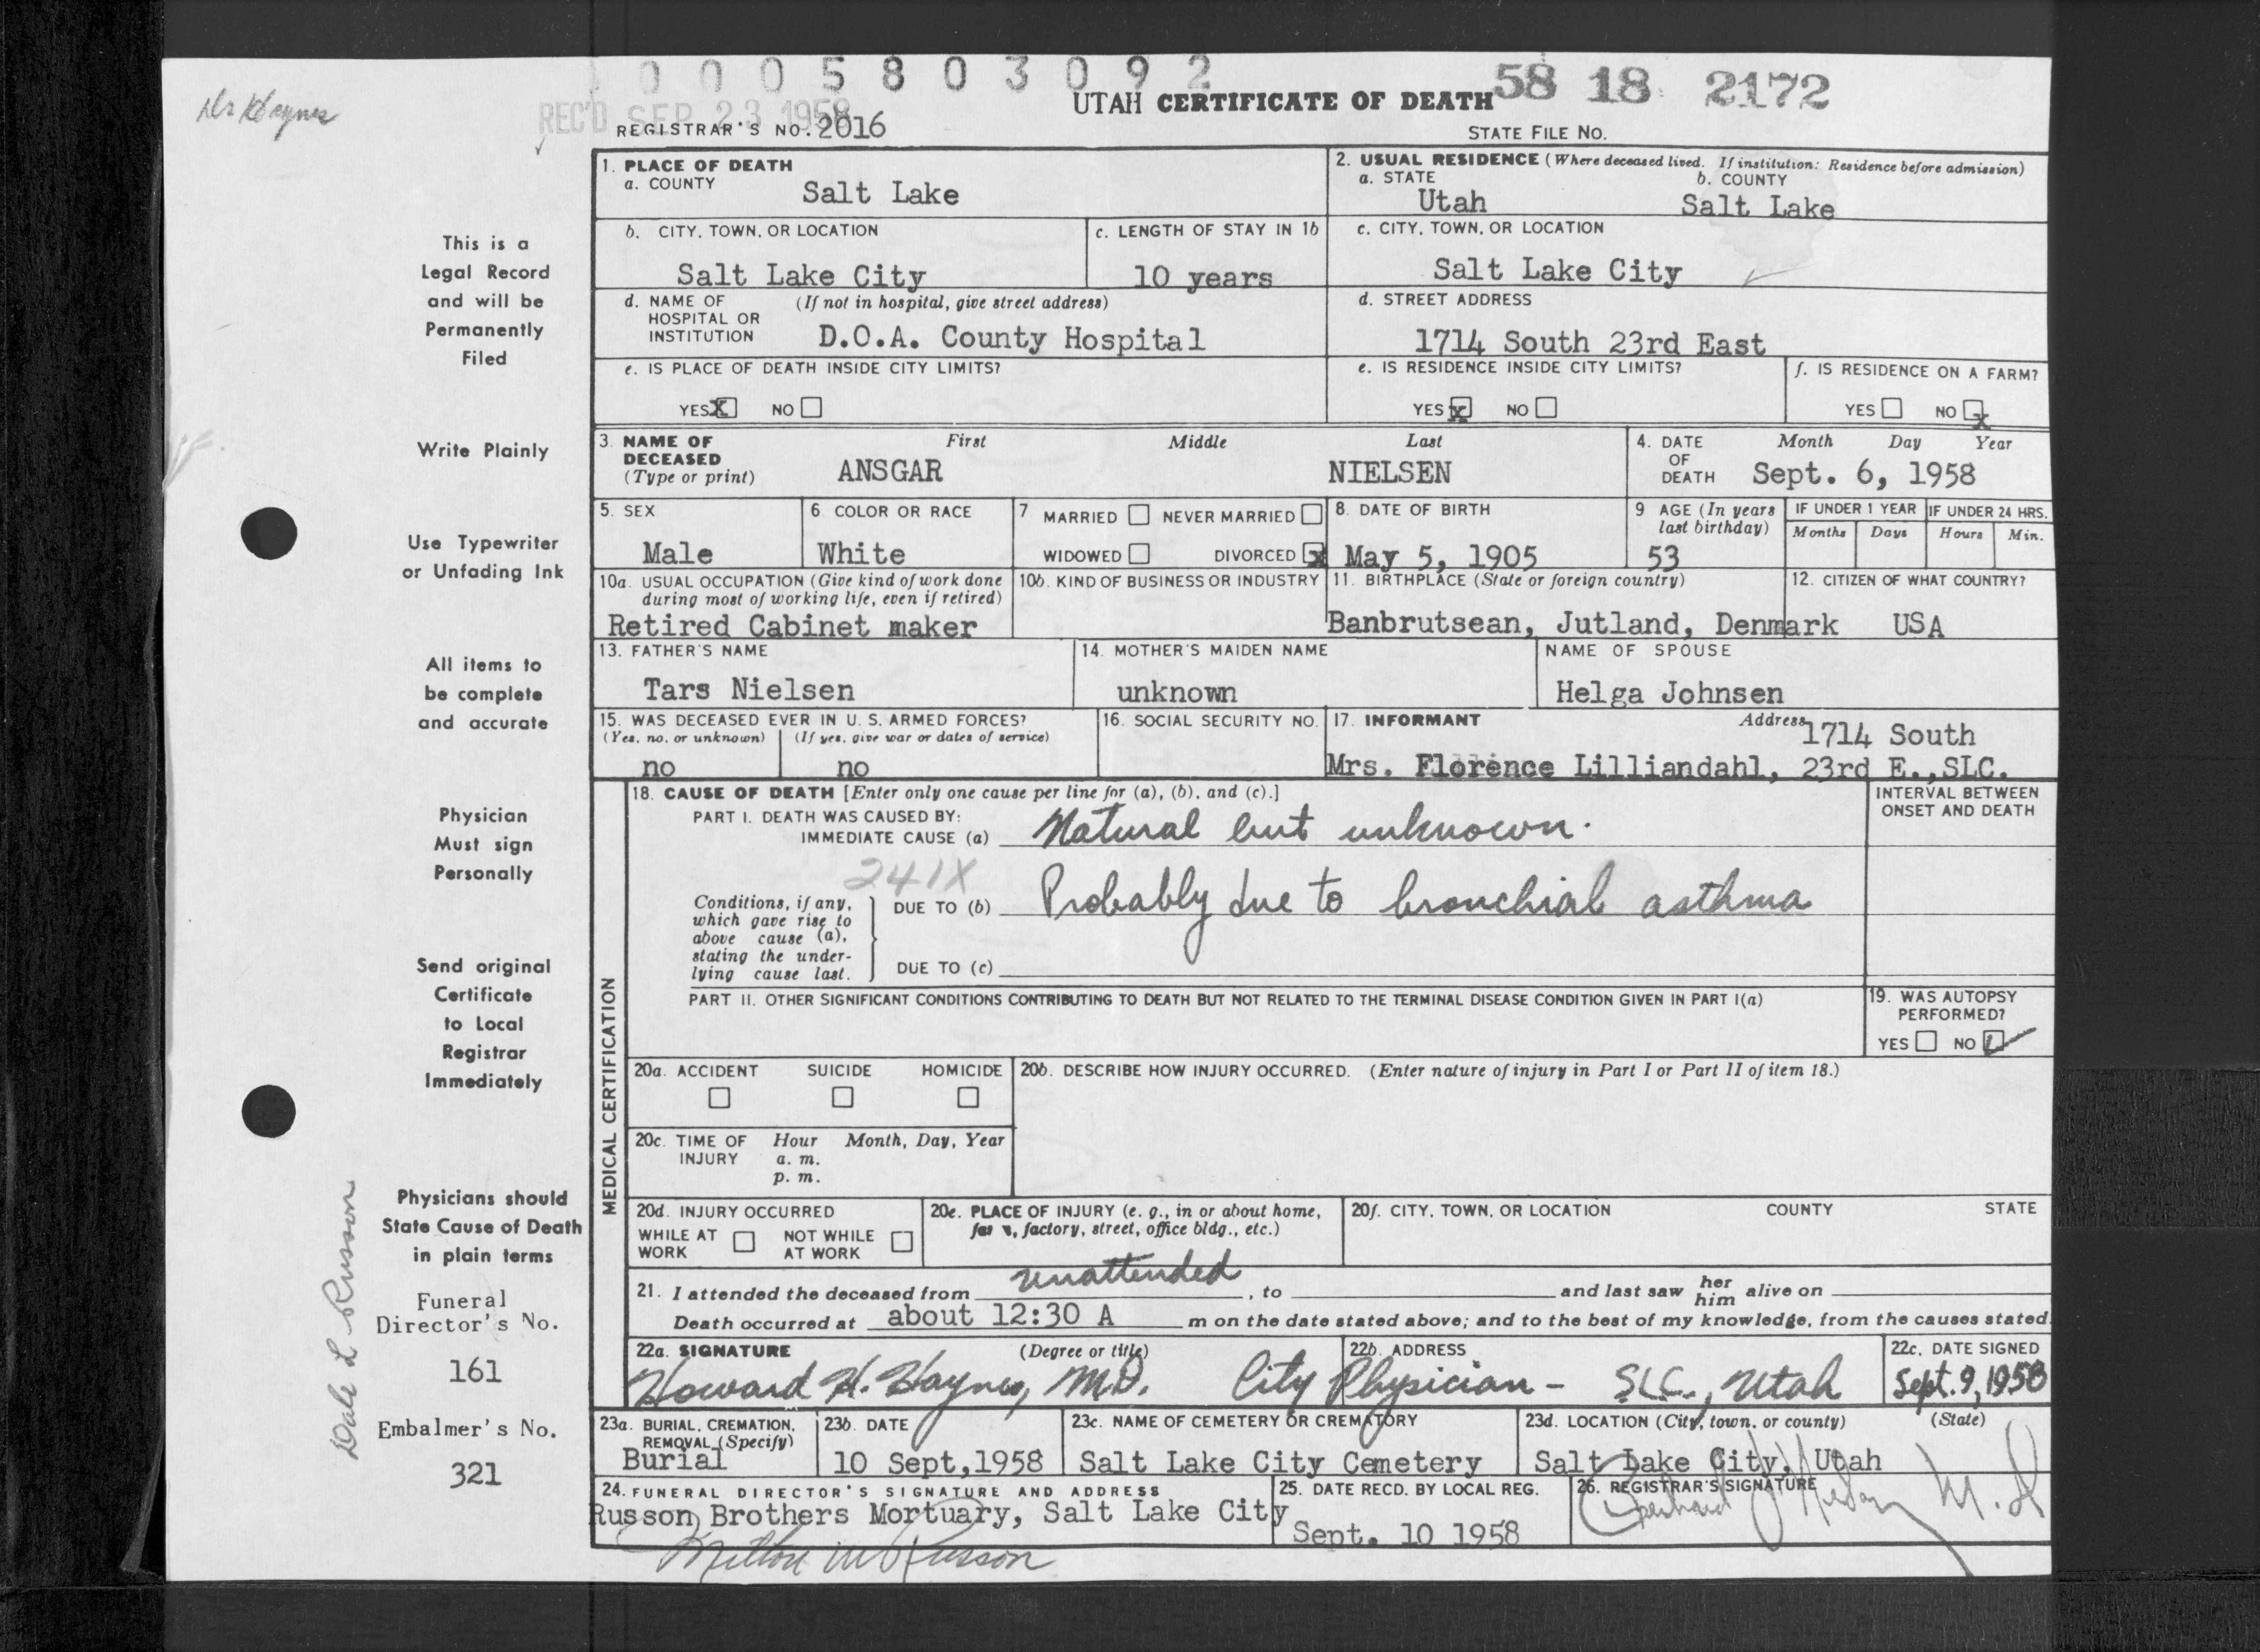 0 0 0 5 8 0 3 0 9 2
58 18 2172
Dr Haynes
REC'D SEP 23 1958
UTAH CERTIFICATE OF DEATH
REGISTRAR'S NO. 2016
STATE FILE NO.
1. PLACE OF DEATH
a. COUNTY
Salt Lake
2. USUAL RESIDENCE (Where deceased lived. If institution: Residence before admission)
a. STATE b. COUNTY
Utah Salt Lake
b. CITY, TOWN, OR LOCATION
Salt Lake City
c. LENGTH OF STAY IN 1b
10 years
c. CITY, TOWN, OR LOCATION
Salt Lake City
d. NAME OF (If not in hospital, give street address)
HOSPITAL OR
INSTITUTION D.O.A. County Hospital
d. STREET ADDRESS
1714 South 23rd East
e. IS PLACE OF DEATH INSIDE CITY LIMITS?
YES X NO
e. IS RESIDENCE INSIDE CITY LIMITS?
YES X NO
f. IS RESIDENCE ON A FARM?
YES NO X
3. NAME OF First Middle Last
DECEASED
(Type or print) ANSGAR NIELSEN
4. DATE Month Day Year
OF
DEATH Sept. 6, 1958
5. SEX
Male
6. COLOR OR RACE
White
7. MARRIED NEVER MARRIED
WIDOWED DIVORCED X
8. DATE OF BIRTH
May 5, 1905
9. AGE (In years
last birthday)
53
IF UNDER 1 YEAR
Months Days
IF UNDER 24 HRS.
Hours Min.
10a. USUAL OCCUPATION (Give kind of work done
during most of working life, even if retired)
Retired Cabinet maker
10b. KIND OF BUSINESS OR INDUSTRY
11. BIRTHPLACE (State or foreign country)
Banbrutsean, Jutland, Denmark
12. CITIZEN OF WHAT COUNTRY?
USA
13. FATHER'S NAME
Tars Nielsen
14. MOTHER'S MAIDEN NAME
unknown
NAME OF SPOUSE
Helga Johnsen
15. WAS DECEASED EVER IN U. S. ARMED FORCES?
(Yes, no, or unknown) (If yes, give war or dates of service)
no no
16. SOCIAL SECURITY NO.
17. INFORMANT Address
1714 South
Mrs. Florence Lilliandahl, 23rd E.,SLC.
MEDICAL CERTIFICATION
18. CAUSE OF DEATH [Enter only one cause per line for (a), (b), and (c).]
PART I. DEATH WAS CAUSED BY:
IMMEDIATE CAUSE (a) Natural but unknown.
241X
Conditions, if any,
which gave rise to
above cause (a),
stating the under-
lying cause last.
DUE TO (b) Probably due to bronchial asthma
DUE TO (c)
INTERVAL BETWEEN
ONSET AND DEATH
PART II. OTHER SIGNIFICANT CONDITIONS CONTRIBUTING TO DEATH BUT NOT RELATED TO THE TERMINAL DISEASE CONDITION GIVEN IN PART I(a)
19. WAS AUTOPSY
PERFORMED?
YES NO ✓
20a. ACCIDENT SUICIDE HOMICIDE
20b. DESCRIBE HOW INJURY OCCURRED. (Enter nature of injury in Part I or Part II of item 18.)
20c. TIME OF Hour Month, Day, Year
INJURY a. m.
p. m.
20d. INJURY OCCURRED
WHILE AT NOT WHILE
WORK AT WORK
20e. PLACE OF INJURY (e. g., in or about home,
factory, street, office bldg., etc.)
20f. CITY, TOWN, OR LOCATION COUNTY STATE
21. I attended the deceased from unattended, to and last saw her him alive on
Death occurred at about 12:30 A m on the date stated above; and to the best of my knowledge, from the causes stated.
22a. SIGNATURE (Degree or title)
Howard H. Haynes, M.D.
22b. ADDRESS
City Physician - SLC., Utah
22c. DATE SIGNED
Sept. 9, 1958
23a. BURIAL, CREMATION,
REMOVAL (Specify)
Burial
23b. DATE
10 Sept,1958
23c. NAME OF CEMETERY OR CREMATORY
Salt Lake City Cemetery
23d. LOCATION (City, town, or county) (State)
Salt Lake City, Utah
24. FUNERAL DIRECTOR'S SIGNATURE AND ADDRESS
Russon Brothers Mortuary, Salt Lake City
Milton W Russon
25. DATE RECD. BY LOCAL REG.
Sept. 10 1958
26. REGISTRAR'S SIGNATURE
M. D
This is a
Legal Record
and will be
Permanently
Filed
Write Plainly
Use Typewriter
or Unfading Ink
All items to
be complete
and accurate
Physician
Must sign
Personally
Send original
Certificate
to Local
Registrar
Immediately
Physicians should
State Cause of Death
in plain terms
Funeral
Director's No.
161
Embalmer's No.
321
Dale L Russon